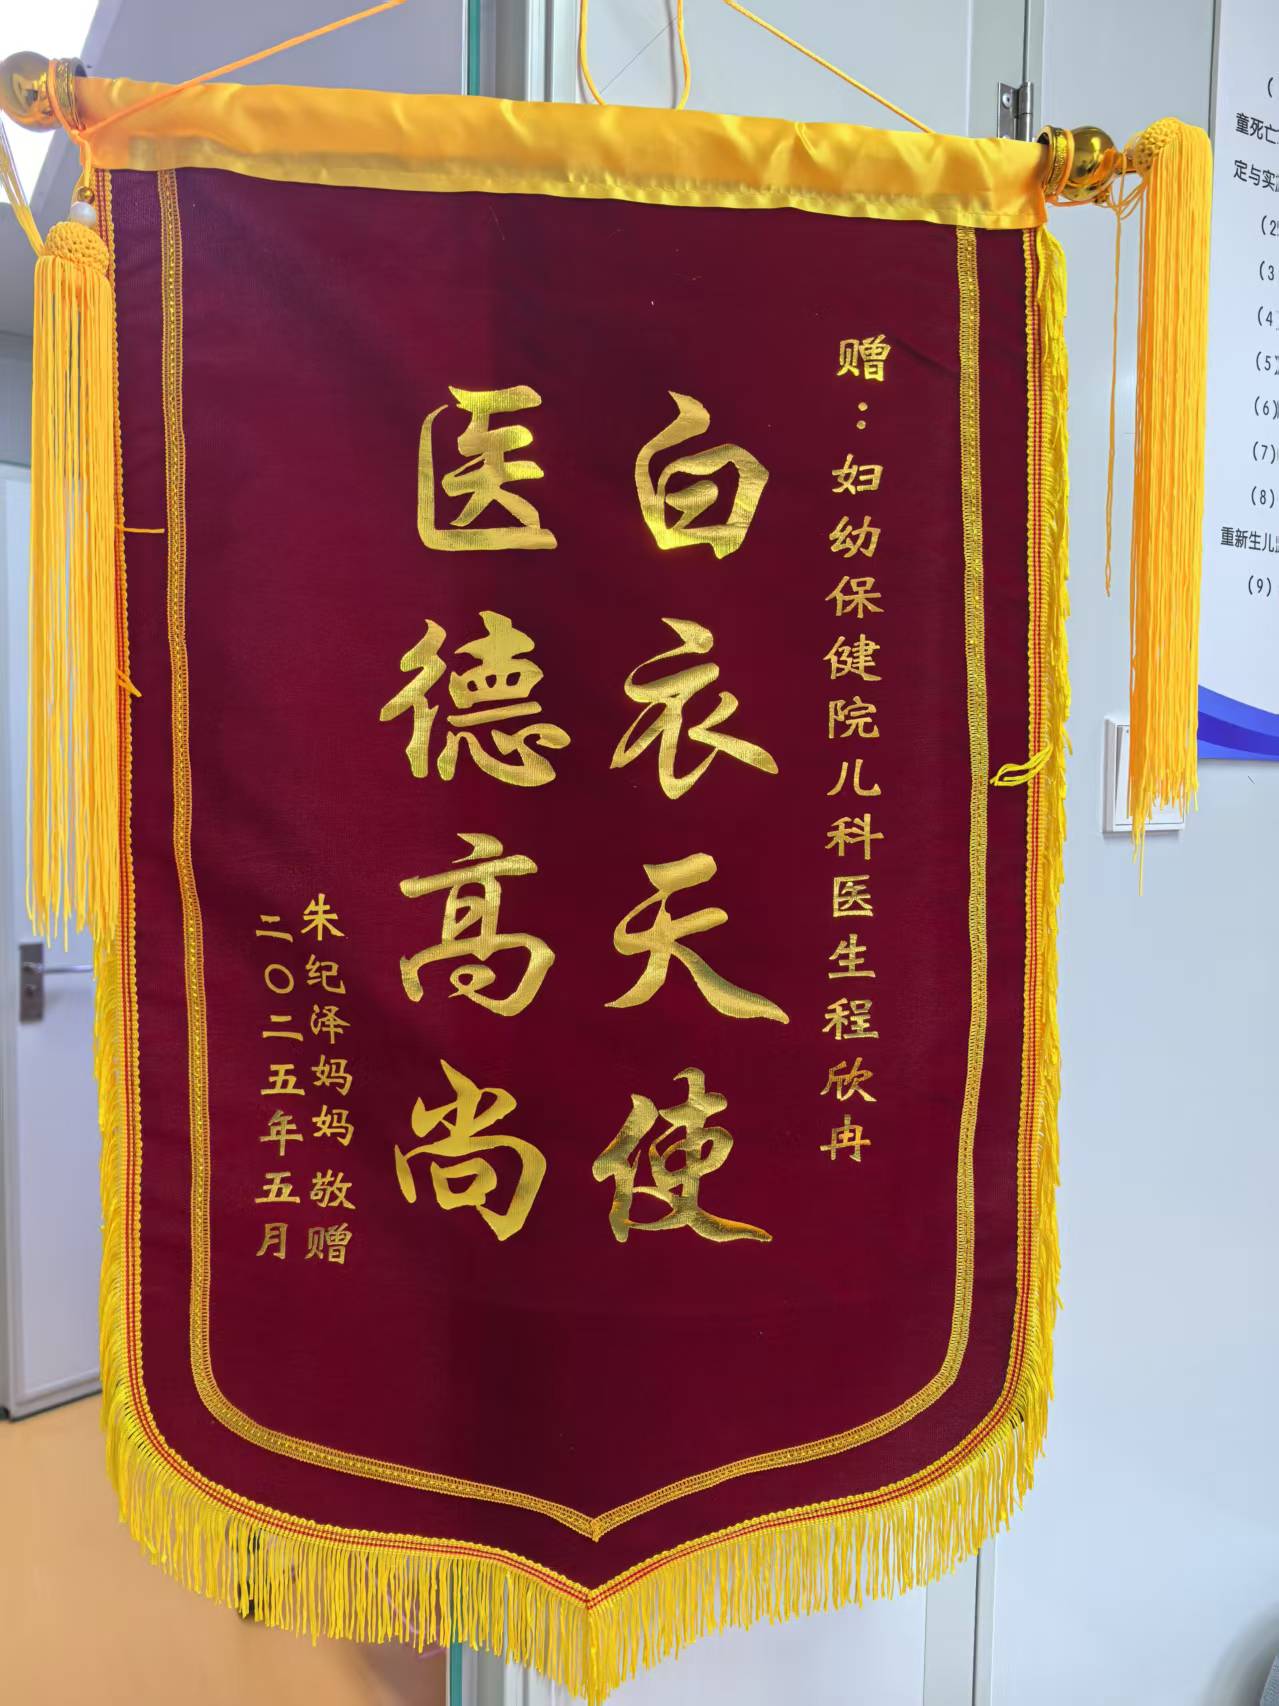 赠：妇幼保健院儿科医生程欣冉
白衣天使
医德高尚
朱纪泽妈妈敬赠
二〇二五年五月
(
童死亡
定与实
(2
(3
(4
(5)
(6)
(7)
(8)
重新生儿
(9)